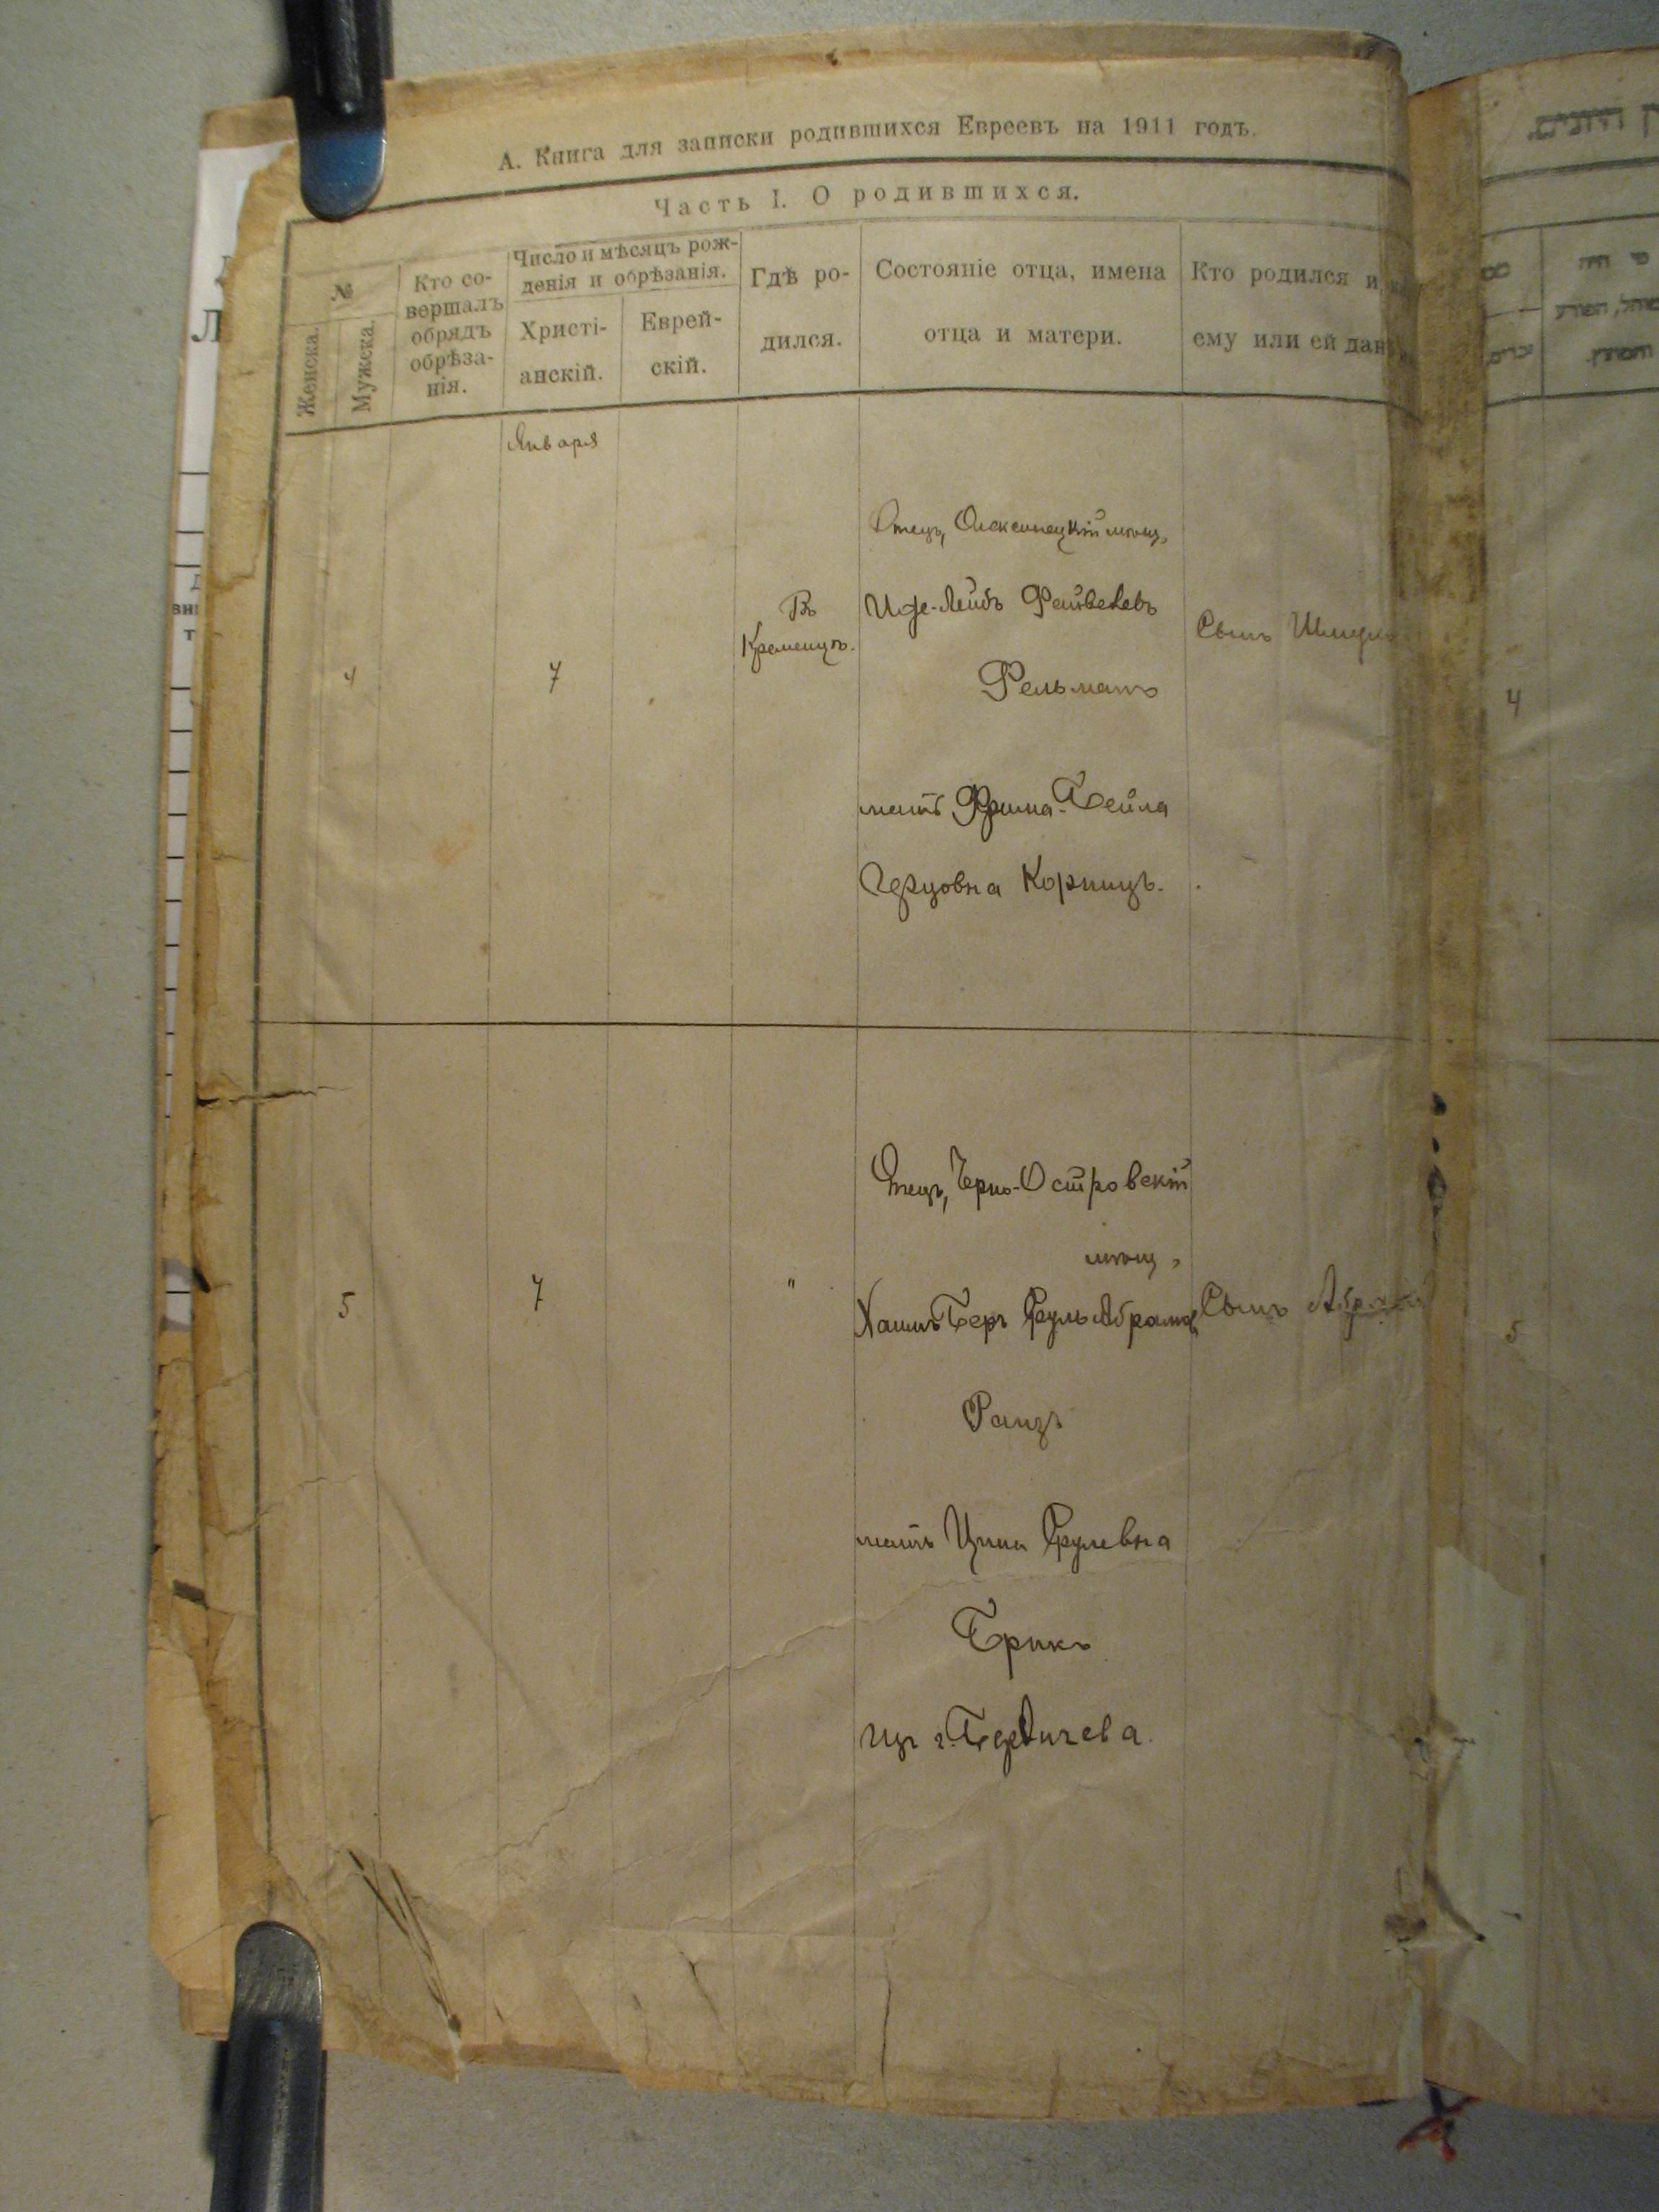 А. Книга для записки родившихся Евреевъ на 1911 годъ.
Часть I. О родившихся.
№
Женска.
Мужска.
Кто со-
вершалъ
обрядъ
обрѣза-
нія.
Число и мѣсяцъ рож-
денія и обрѣзанія.
Христі-
анскій.
Еврей-
скій.
Гдѣ ро-
дился.
Состояніе отца, имена
отца и матери.
Кто родился и
ему или ей дан
Января
4
7
Въ
Кременцѣ.
Отецъ, Олексинецкій мѣщ.
Ице-Лейбъ Файвелевъ
Фельманъ
мать Фрима-Бейла
Герцовна Корницъ.
Сынъ
4
5
7
"
Отецъ, Черно-Островскій
мѣщ,
Хаимъ Беръ Сруль Абрамов
Ранзъ
мать Ципа Срулевна
Брикъ
изъ г. Бердичева.
Сынъ Абрам
5